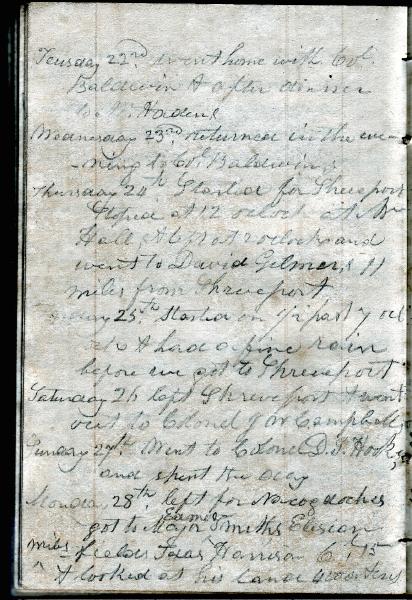 Teusday 22nd went home with Col.
Baldwin & after dinner
to Haden's
Wednesday 23rd returned in the eve
-ning to Col Baldwin's
Thursday 24th Started for Shreveport
Stoped at 12 oclock at
Hall & left at 2 oclock and
went to David Gilmers 11
miles from Shreveport
25th Started on 1/2 past 7 ocl
& had a fine rain
before we got to Shreveport
Saturday 26 left Shreveport & went
out to Colonel J W Campbells
Sunday 27th Went to Colonel D. S. Hook
and spent the day
Monday 28th left for Nacogdoches
got to Major Smiths Elisian
miles fields Texas Harrison Co 15
^ & looked at his land